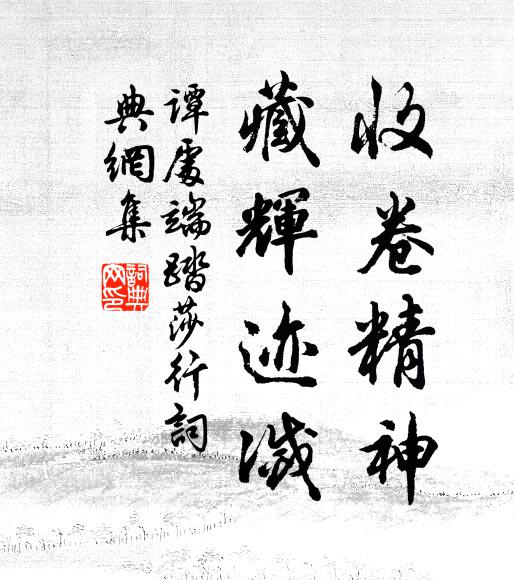 收卷精神
藏輝迹滅
譚處端踏莎行詞
典網集
詞典網印